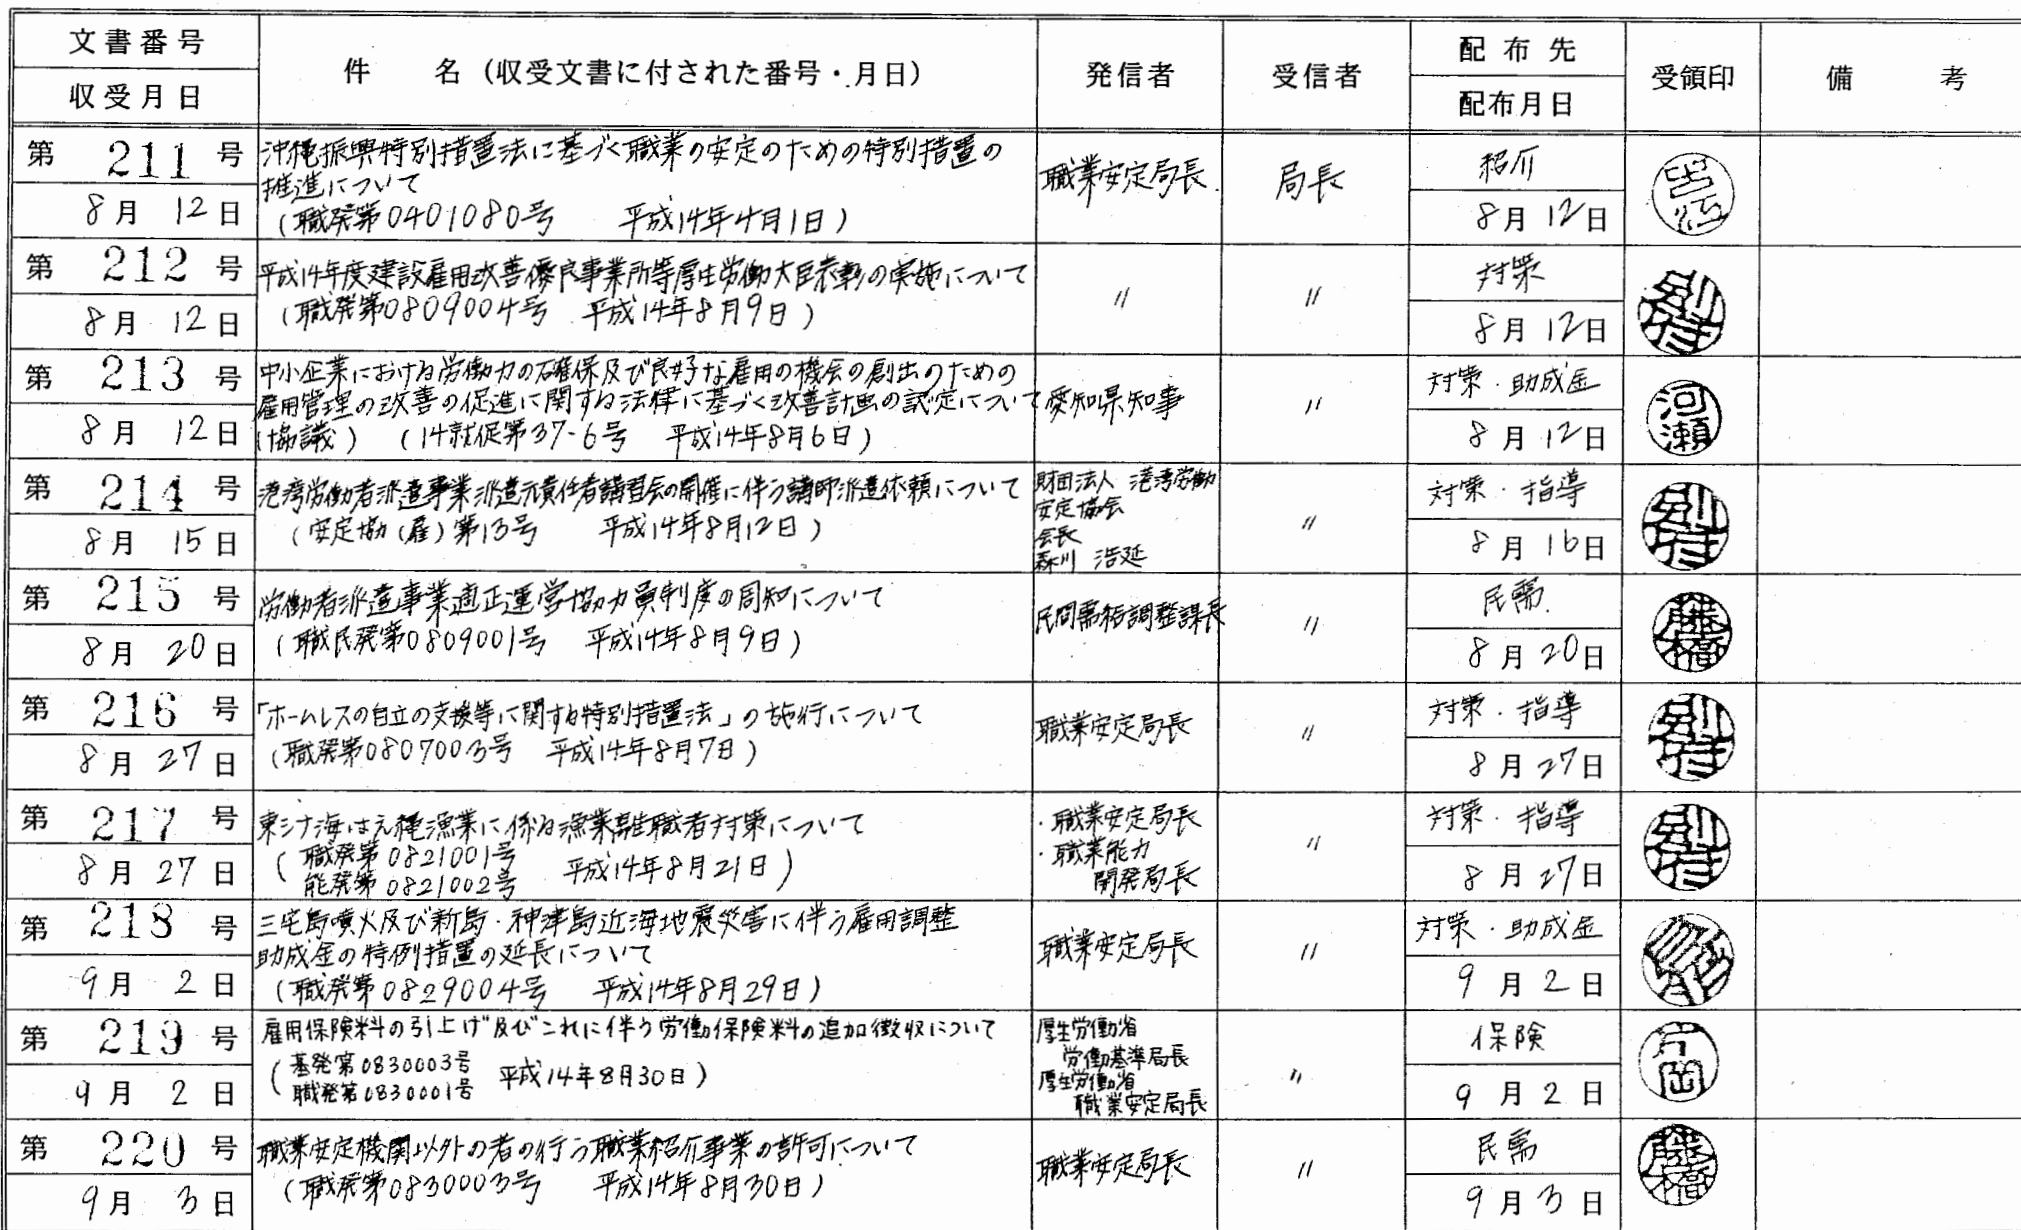 文書番号
収受月日
件 名（収受文書に付された番号・月日）
発信者
受信者
配布先
配布月日
受領印
備 考
第 211 号
8月 12日
沖縄振興特別措置法に基づく職業の安定のための特別措置の
推進について
（職発第0401080号 平成14年4月1日）
職業安定局長
局長
紹介
8月12日
第 212 号
8月 12日
平成14年度建設雇用改善優良事業所等厚生労働大臣表彰の実施について
（職発第0809004号 平成14年8月9日）
〃
〃
対策
8月12日
別府
第 213 号
8月 12日
中小企業における労働力の確保及び良好な雇用の機会の創出のための
雇用管理の改善の促進に関する法律に基づく改善計画の認定について
（協議）（14就促第37-6号 平成14年8月6日）
愛知県知事
〃
対策・助成金
8月12日
河瀬
第 214 号
8月 15日
港湾労働者派遣事業派遣元責任者講習会の開催に伴う講師派遣依頼について
（安定協（雇）第13号 平成14年8月12日）
財団法人 港湾労働
安定協会
会長
森川 浩延
〃
対策・指導
8月16日
別府
第 215 号
8月 20日
労働者派遣事業適正運営協力員制度の周知について
（職民発第0809001号 平成14年8月9日）
民間需給調整課長
〃
民需
8月20日
藤橋
第 216 号
8月 27日
「ホームレスの自立の支援等に関する特別措置法」の施行について
（職発第0807003号 平成14年8月7日）
職業安定局長
〃
対策・指導
8月27日
別府
第 217 号
8月 27日
東シナ海はえ縄漁業に係る漁業離職者対策について
（職発第0821001号
能発第0821002号 平成14年8月21日）
・職業安定局長
・職業能力
開発局長
〃
対策・指導
8月27日
別府
第 218 号
9月 2日
三宅島噴火及び新島・神津島近海地震災害に伴う雇用調整
助成金の特例措置の延長について
（職発第0829004号 平成14年8月29日）
職業安定局長
〃
対策・助成金
9月2日
第 219 号
9月 2日
雇用保険料の引上げ及びこれに伴う労働保険料の追加徴収について
（基発第0830003号
職発第0830001号 平成14年8月30日）
厚生労働省
労働基準局長
厚生労働省
職業安定局長
〃
保険
9月2日
片岡
第 220 号
9月 3日
職業安定機関以外の者の行う職業紹介事業の許可について
（職発第0830003号 平成14年8月30日）
職業安定局長
〃
民需
9月3日
藤橋